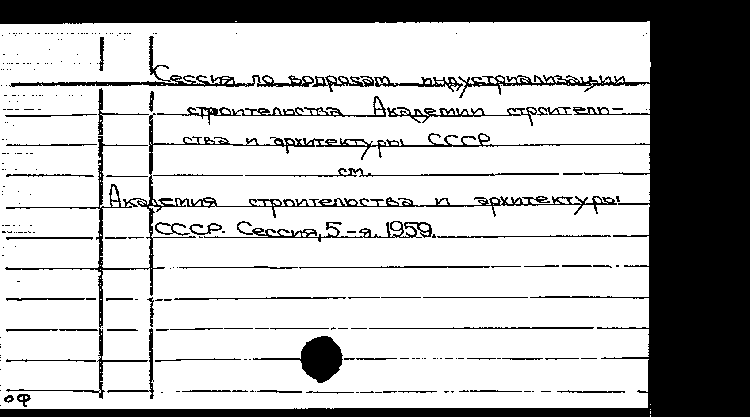 Сессия по вопросам индустриализации
строительства Академии строитель-
ства и архитектуры СССР
см.
Академия строительства и архитектуры
СССР. Сессия, 5-я. 1959.
оф